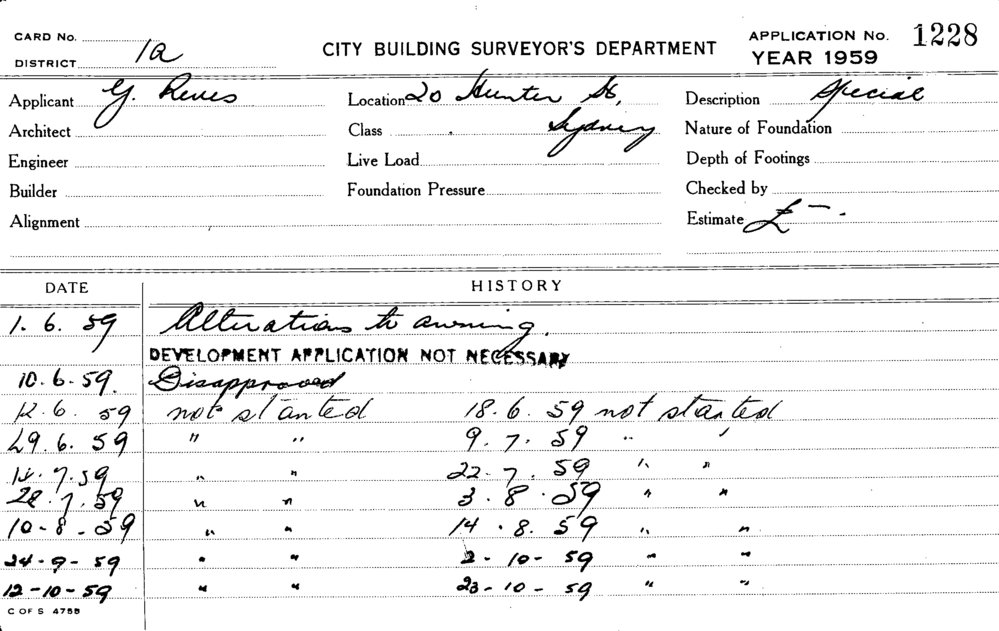 CARD No. CITY BUILDING SURVEYOR'S DEPARTMENT APPLICATION No. 1228
DISTRICT 1a YEAR 1959
Applicant G. Reves Location 20 Hunter St, Description Special
Architect Class Sydney Nature of Foundation
Engineer Live Load Depth of Footings
Builder Foundation Pressure Checked by
Alignment Estimate £ - .
DATE HISTORY
1. 6. 59 Alterations to awning.
DEVELOPMENT APPLICATION NOT NECESSARY
10. 6. 59. Disapproved
12. 6. 59 not started 18. 6. 59 not started
29. 6. 59 " " 9. 7. 59 " "
7. 59 " " 22. 7. 59 " "
28. 7. 59 " " 3. 8. 59 " "
10-8-59 " " 14. 8. 59 " "
24-9-59 " " 2-10-59 " "
12-10-59 " " 23-10-59 " "
C OF S 4758